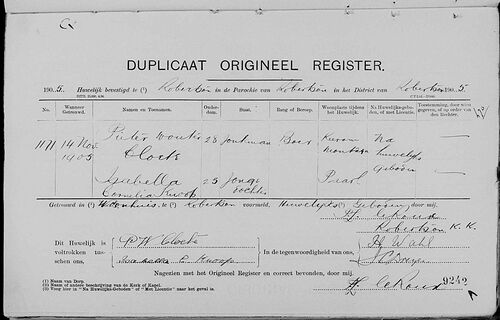 DUPLICAAT ORIGINEEL REGISTER.
1905. Huwelijk bevestigd te (1) Robertson in de Parochie van Robertson in het District van Robertson 1905.
Wanneer Getrouwd. Namen en Toenamen. Ouderdom. Staat. Rang of Beroep. Woonplaats tijdens het Huwelijk. Na Huwelijks-geboden, of met Licentie. Toestemming, door wien gegeven, of op order van den Rechter.
1171 14 Nov 1905 Pieter Wouter Cloete 28 Jonkman Boer Montagu Na huwelijks geboden
Isabella Cornelia Knoop 25 Jonge dochter Paarl
Getrouwd in Woonhuis, te Robertson voormeld, Huwelijks Geboden, door mij,
Robertson K. K.
Dit Huwelijk is voltrokken tusschen ons,
P W Cloete
Isabella C. Knoop
In de tegenwoordigheid van ons,
Wahl
Nagezien met het Origineel Register en correct bevonden, door mij.
9242
(1) Naam van Dorp.
(2) Naam of andere beschrijving van de Kerk of Kapel.
(3) Voeg hier in "Na Huwelijks-Geboden" of "Met Licentie" naar het geval is.